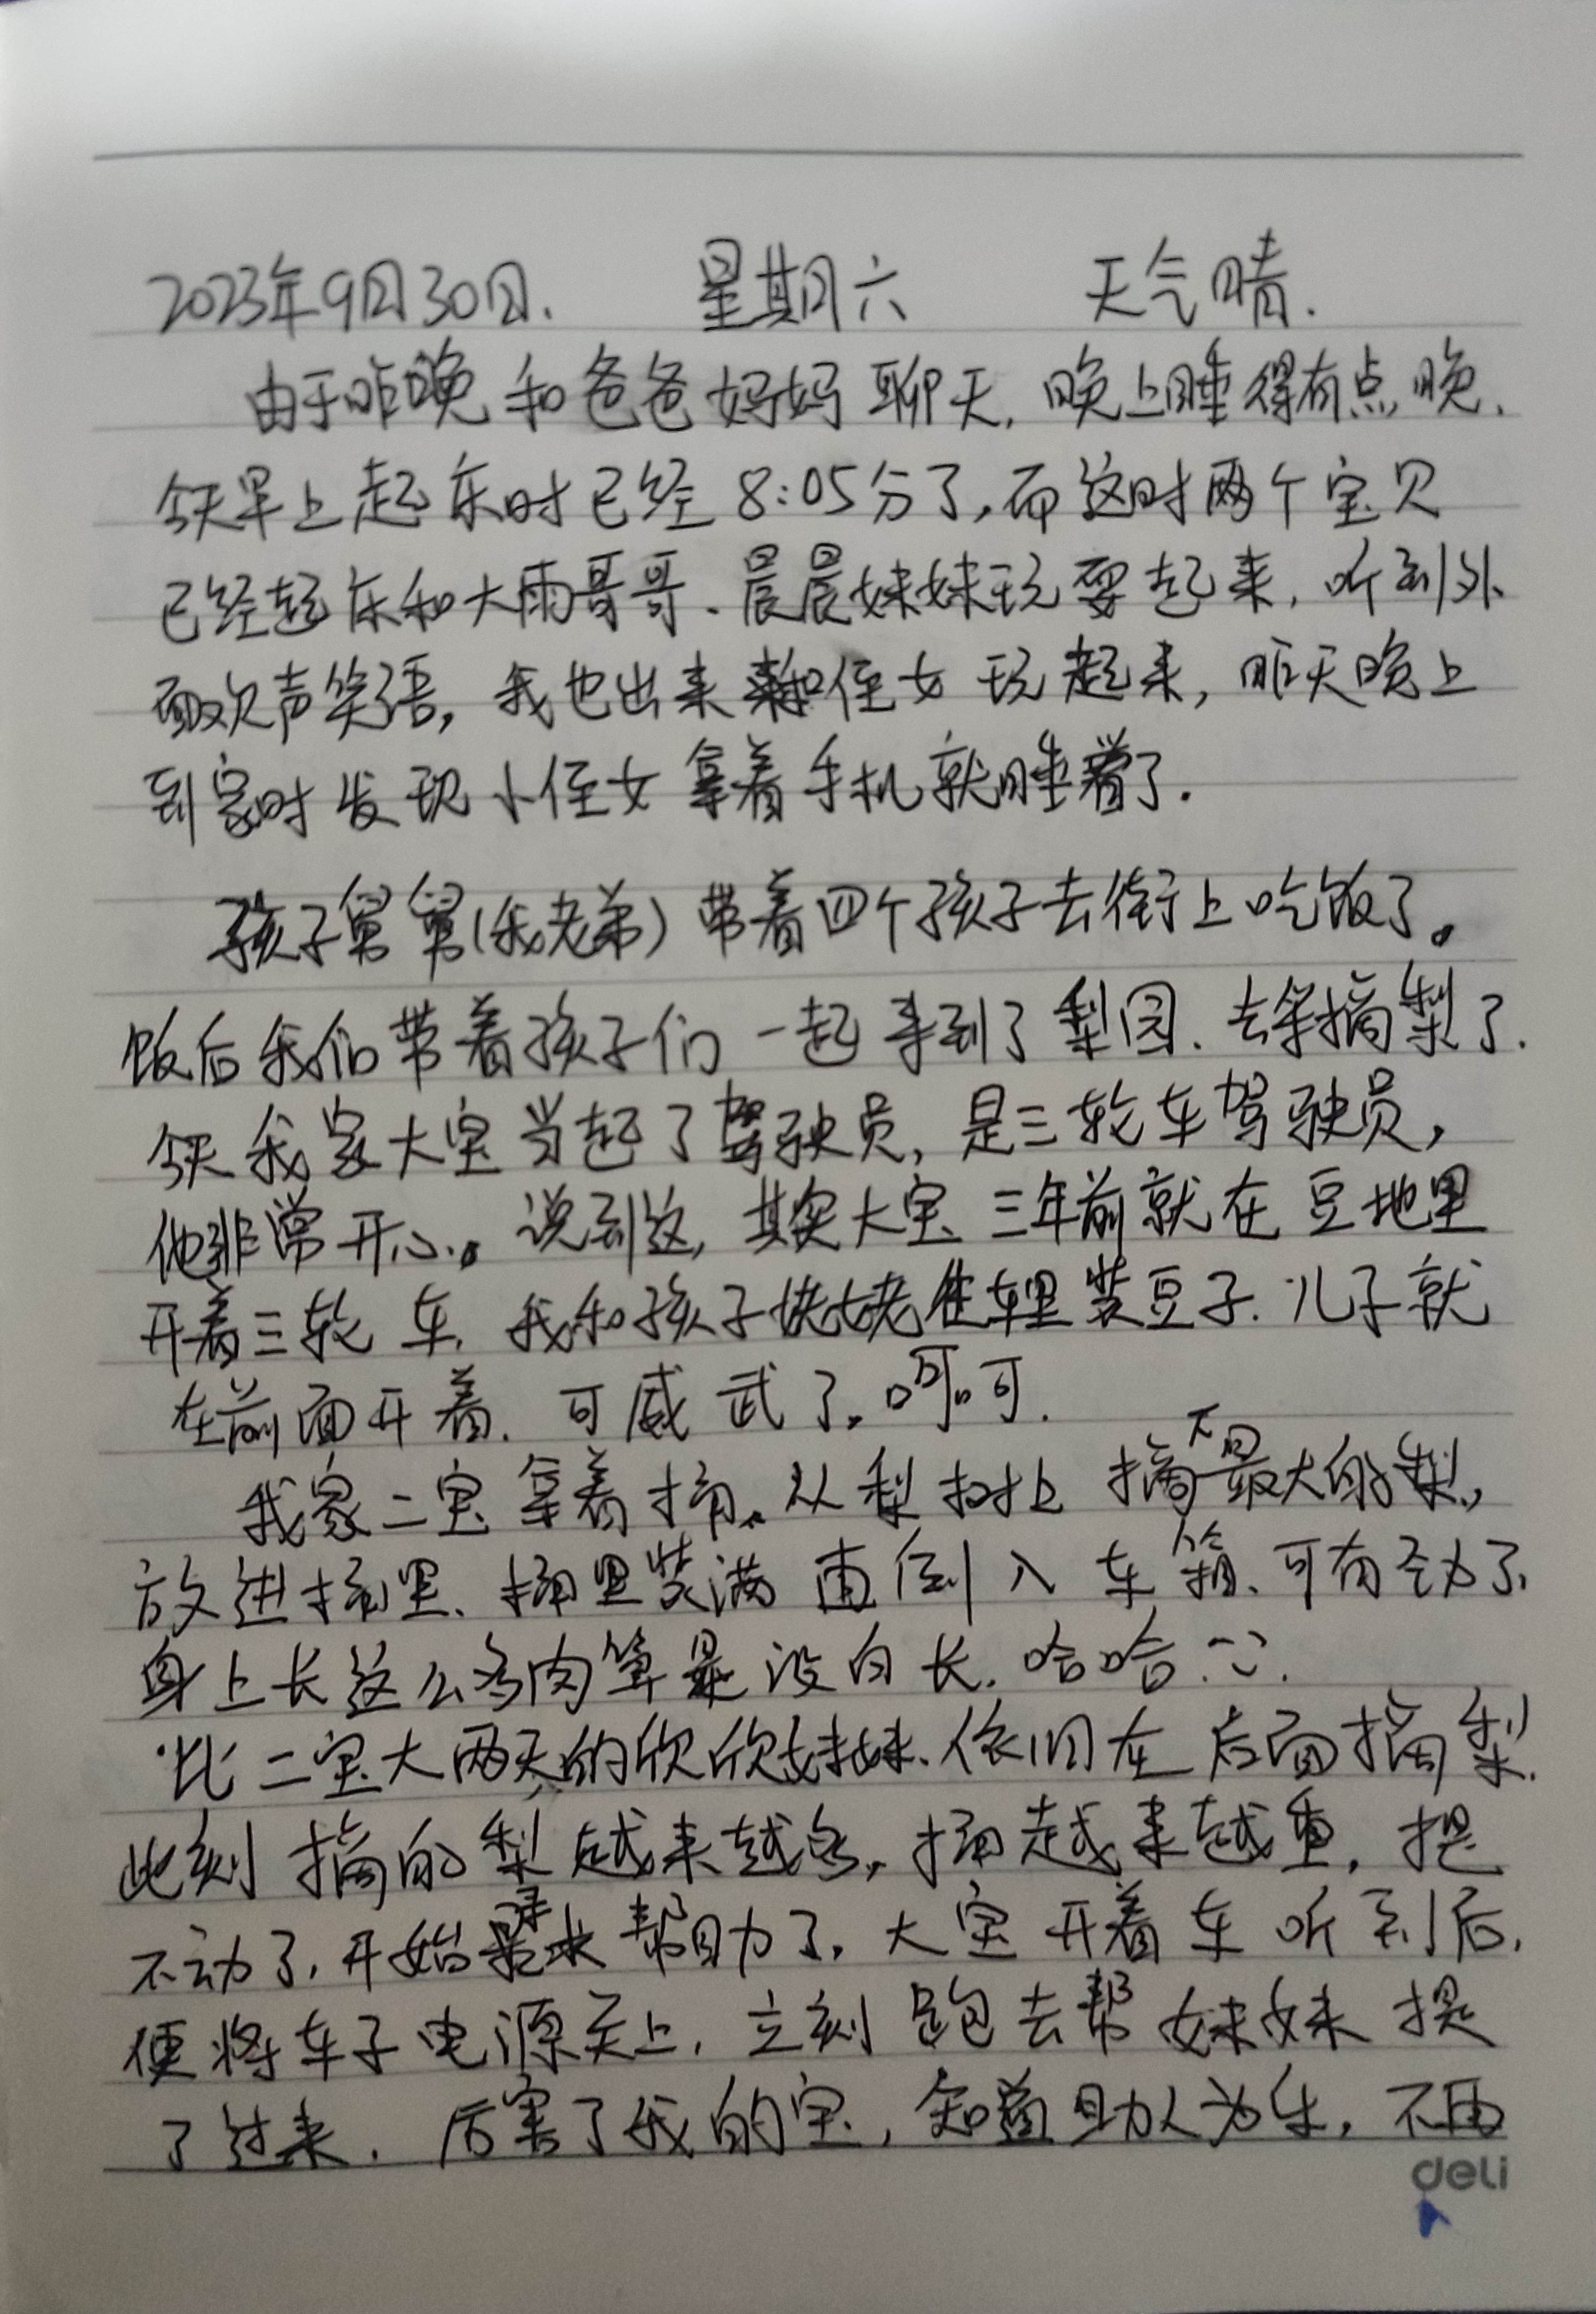 2023年9月30日. 星期六 天气晴.
由于昨晚和爸爸妈妈聊天, 晚上睡得有点晚.
今天早上起床时已经8:05分了,而这时两个宝贝
已经起床和大雨哥哥、晨晨妹妹玩耍起来, 听到外
面欢声笑语, 我也出来和侄女玩起来, 昨天晚上
到家时发现小侄女拿着手机就睡着了.
孩子舅舅(我老弟)带着四个孩子去街上吃饭了。
饭后我们带着孩子们一起来到了梨园. 去摘梨了.
今天我家大宝当起了驾驶员, 是三轮车驾驶员,
他非常开心。说到这, 其实大宝三年前就在豆地里
开着三轮车, 我和孩子姥姥在车里装豆子. 儿子就
在前面开着. 可威武了. 呵呵.
我家二宝拿着桶. 从梨树上摘下最大的梨,
放进桶里、桶里装满再倒入车箱、可有劲了,
身上长这么多肉算是没白长. 哈哈
比二宝大两天的欣欣妹妹、依旧在后面摘梨.
此刻摘的梨越来越多, 桶越来越重, 提
不动了, 开始寻求帮助了, 大宝开着车听到后,
便将车子电源关上, 立刻跑去帮妹妹提
了过来. 厉害了我的宝, 知道助人为乐, 不由
deli